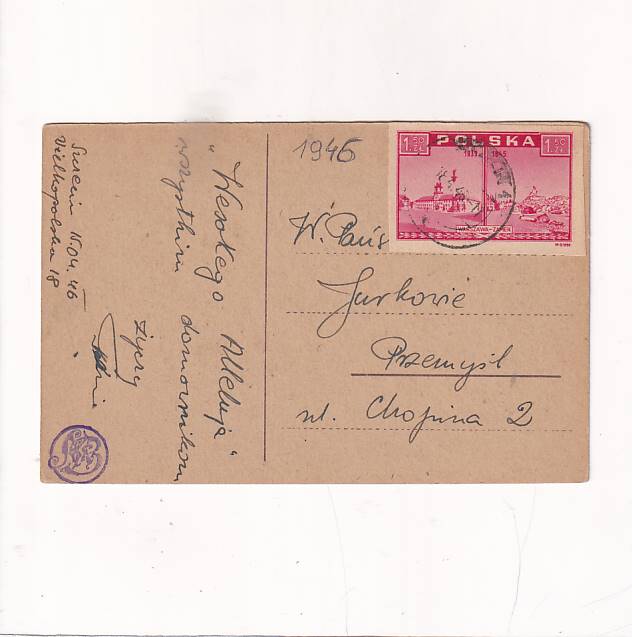 Szczecin 15.04.46
Wielkopolska 18
„Wesołego Alleluja"
wszystkim domownikom
życzy
1946
W. Państ
Jurkowie
Przemyśl
ul. Chopina 2
1 50 ZŁ
POLSKA
1 50 ZŁ
1939
1945
WARSZAWA-ZAMEK